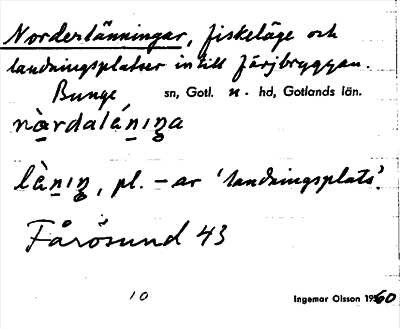 Norderlänningar, fiskeläge och
landningsplatser intill färjbryggan.
Bunge sn, Gotl. n. hd, Gotlands län.
nàrdalániŋa
lànıŋ, pl. -ar 'landningsplats'.
Fårösund 43
10 Ingemar Olsson 1960